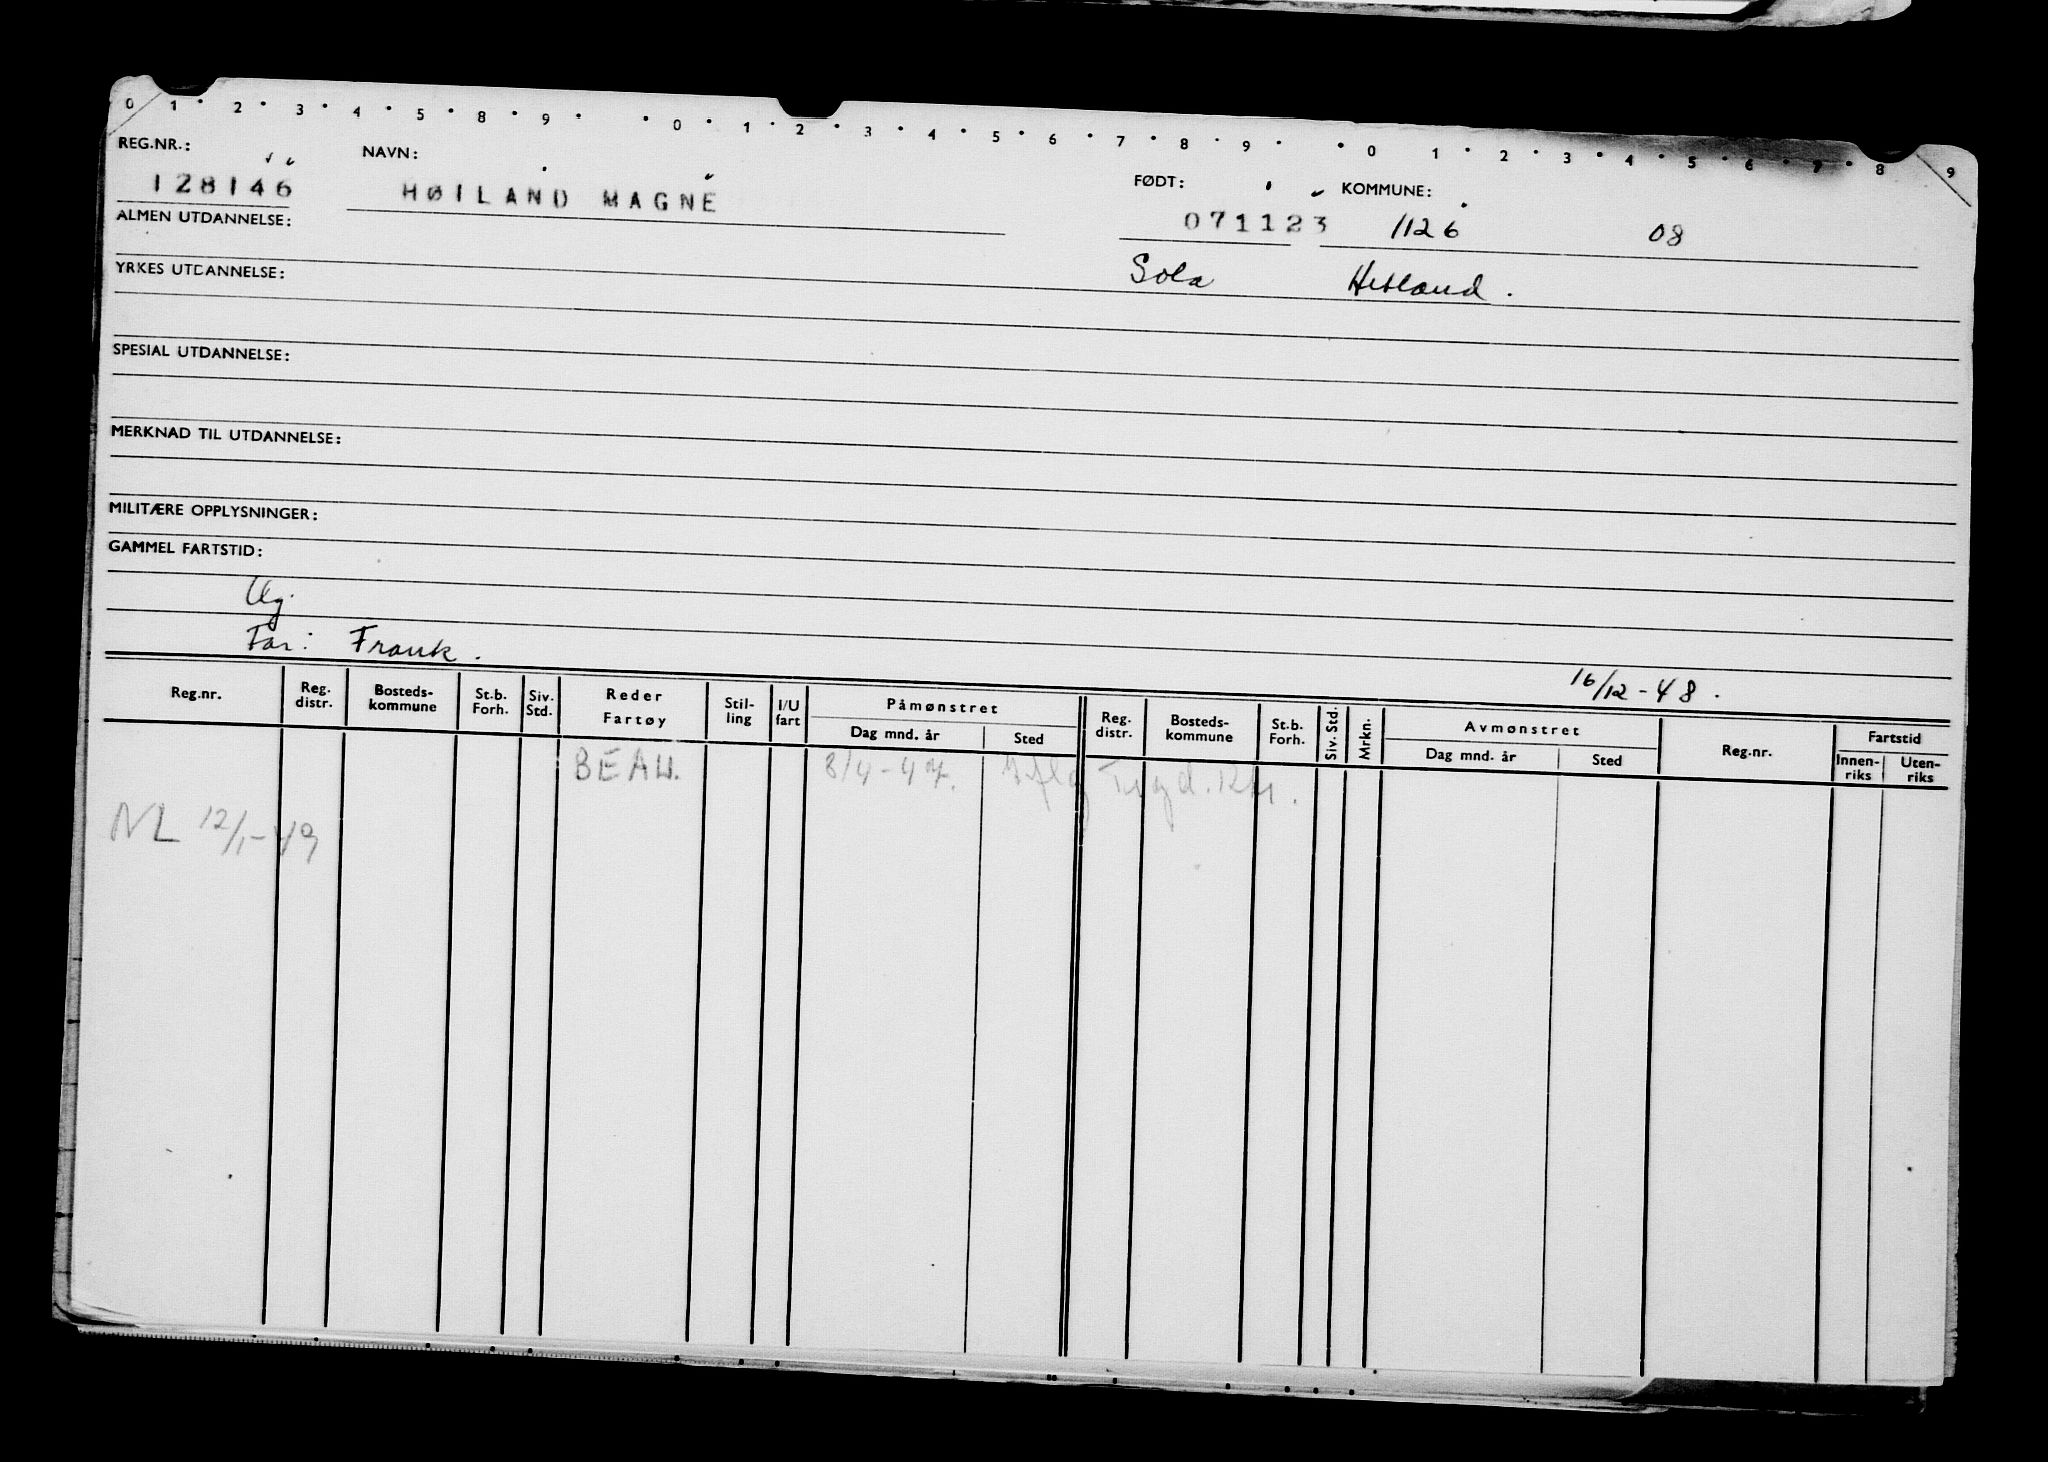 0 1 • 2 • 3 • 4 • 5 • 8 • 9 • • 0 • 1 • 2 • 3 • 4 • 5 • 6 • 7 • 8 • 9 • • 0 1 • 2 • 3 • 4 • 5 • 6 • 7 • 8 9
REG.NR.: NAVN: FØDT: KOMMUNE:
128146 HØILAND MAGNE 071123 1126 08
ALMEN UTDANNELSE:
Sola Hetland.
YRKES UTDANNELSE:
SPESIAL UTDANNELSE:
MERKNAD TIL UTDANNELSE:
MILITÆRE OPPLYSNINGER:
GAMMEL FARTSTID:
Ug.
Far: Frank.
16/12-48.
Reg.nr. Reg. distr. Bosteds-kommune St.b. Forh. Siv. Std. Reder Fartøy Stil-ling I/U fart Påmønstret Dag mnd. år Sted Reg. distr. Bosteds-kommune St.b. Forh. Siv. Std. Mrkn. Avmønstret Dag mnd. år Sted Reg.nr. Fartstid Innen-riks Uten-riks
BEAU. 8/4-47.
NL 12/1-49